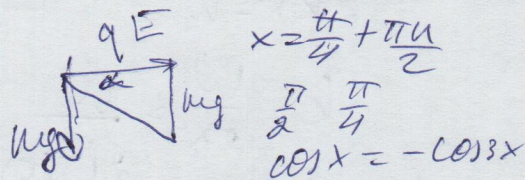 qE
α
mg
mg
x = π/4 + πn/2
π/2 π/4
cosx = -cos3x